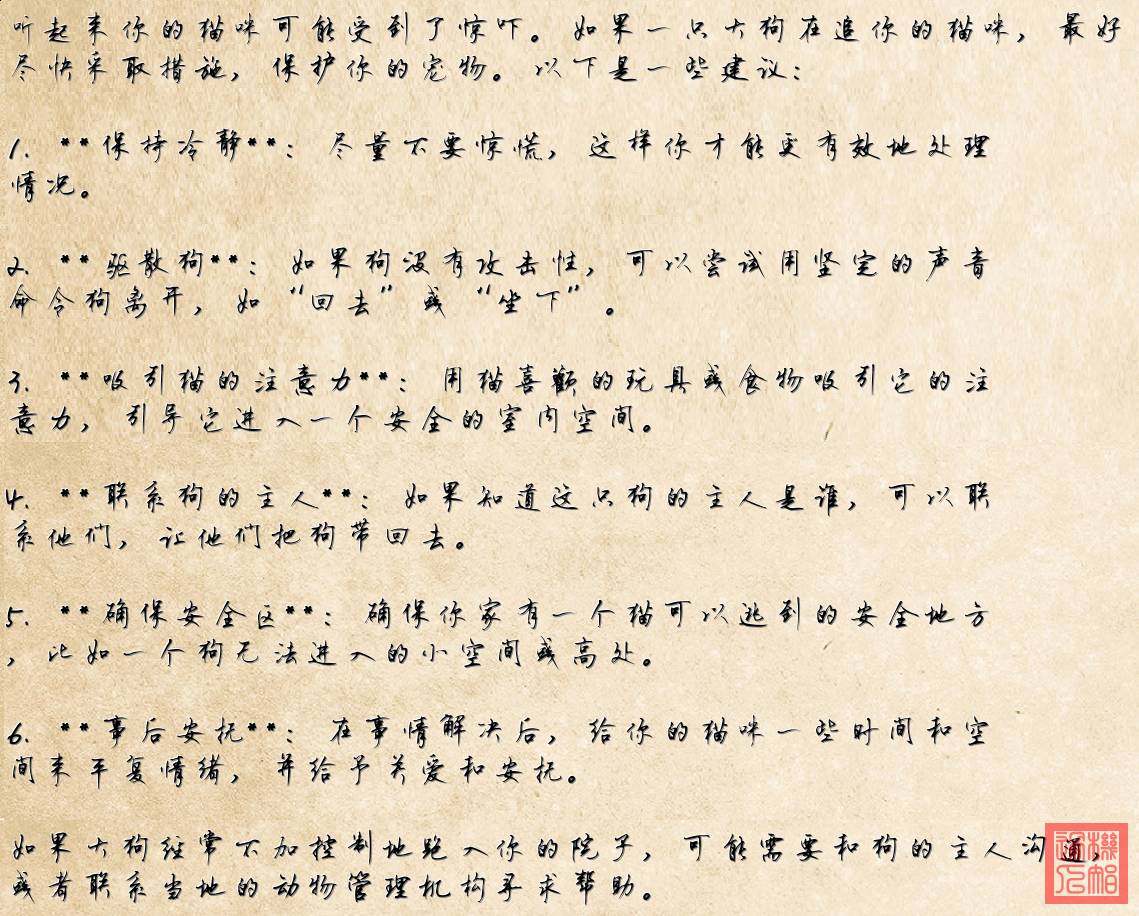 听起来你的猫咪可能受到了惊吓。如果一只大狗在追你的猫咪，最好
尽快采取措施，保护你的宠物。以下是一些建议：
1. **保持冷静**：尽量不要惊慌，这样你才能更有效地处理
情况。
2. **驱散狗**：如果狗没有攻击性，可以尝试用坚定的声音
命令狗离开，如“回去”或“坐下”。
3. **吸引猫的注意力**：用猫喜欢的玩具或食物吸引它的注
意力，引导它进入一个安全的室内空间。
4. **联系狗的主人**：如果知道这只狗的主人是谁，可以联
系他们，让他们把狗带回去。
5. **确保安全区**：确保你家有一个猫可以逃到的安全地方
，比如一个狗无法进入的小空间或高处。
6. **事后安抚**：在事情解决后，给你的猫咪一些时间和空
间来平复情绪，并给予关爱和安抚。
如果大狗经常不加控制地跑入你的院子，可能需要和狗的主人沟通，
或者联系当地的动物管理机构寻求帮助。